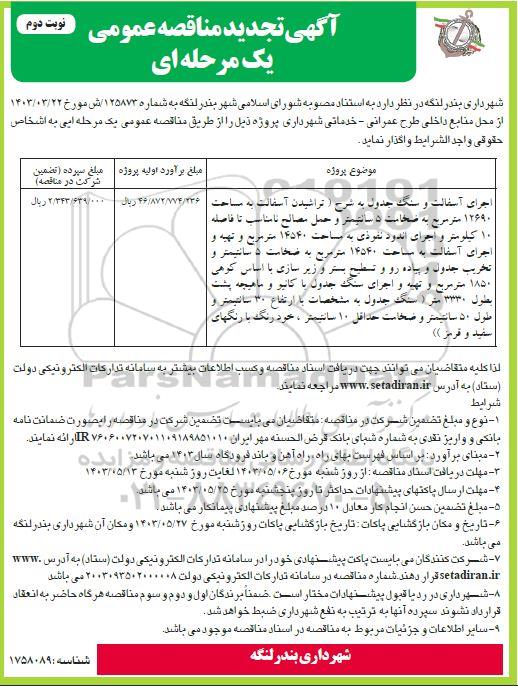 نوبت دوم
آگهی تجدید مناقصه عمومی
یک مرحله ای
شهرداری بندر لنگه در نظر دارد به استناد مصوبه شورای اسلامی شهر بندر لنگه به شماره ۱۲۵۸۷۳/ش مورخ ۱۴۰۳/۰۳/۲۲
از محل منابع داخلی طرح عمرانی - خدماتی شهرداری پروژه ذیل را از طریق مناقصه عمومی یک مرحله ایی به اشخاص
حقوقی واجد الشرایط واگذار نماید.
موضوع پروژه
مبلغ برآورد اولیه پروژه
مبلغ سپرده (تضمین
شرکت در مناقصه)
اجرای آسفالت و سنگ جدول به شرح ( تراشیدن آسفالت به مساحت
۱۲۶۹۰ مترمربع به ضخامت ۵ سانتیمتر و حمل مصالح نامناسب تا فاصله
۱۰ کیلومتر و اجرای اندود نفوذی به مساحت ۱۴۵۴۰ مترمربع و تهیه و
اجرای آسفالت به مساحت ۱۴۵۴۰ مترمربع به ضخامت ۵ سانتیمتر و
تخریب جدول و پیاده رو و تسطیح بستر و زیر سازی با اساس کوهی
۱۸۵۰ مترمربع و تهیه و اجرای سنگ جدول با کانیو و ماهیچه پشت
بطول ۳۳۳۰ متر ( سنگ جدول به مشخصات با ارتفاع ۳۰ سانتیمتر و
طول ۵۰ سانتیمتر و ضخامت حداقل ۱۰ سانتیمتر ، خود رنگ با رنگهای
سفید و قرمز ))
۴۶/۸۷۲/۷۷۴/۲۳۶ ریال
۲/۳۴۳/۶۳۹/۰۰۰ ریال
لذا کلیه متقاضیان می توانند جهت دریافت اسناد مناقصه و کسب اطلاعات بیشتر به سامانه تدارکات الکترونیکی دولت
(ستاد) به آدرس www.setadiran.ir مراجعه نمایند.
شرایط
۱-نوع و مبلغ تضمین شرکت در مناقصه : متقاضیان می بایست تضمین شرکت در مناقصه را بصورت ضمانت نامه
بانکی و واریز نقدی به شماره شبای بانک قرض الحسنه مهر ایران IR ۷۶۰۶۰۰۷۲۰۷۰۱۱۰۹۱۸۹۸۵۱۰۱۰ ارائه نمایند.
۲-مبنای برآورد : بر اساس فهرست بهای راه، راه آهن و باند فرودگاه سال ۱۴۰۳ می باشد.
۳-مهلت دریافت اسناد مناقصه : از روز شنبه مورخ ۱۴۰۳/۰۵/۰۶ لغایت روز شنبه مورخ ۱۴۰۳/۰۵/۱۳
۴-مهلت ارسال پاکتهای پیشنهادات حداکثر تا روز پنجشنبه مورخ ۱۴۰۳/۰۵/۲۵ می باشد.
۵-مبلغ تضمین حسن انجام کار معادل ۱۰ درصد مبلغ پیشنهادی پیمانکار می باشد.
۶-تاریخ و مکان بازگشایی پاکات : تاریخ بازگشایی پاکات روز شنبه مورخ ۱۴۰۳/۰۵/۲۷ و مکان آن شهرداری بندر لنگه
می باشد.
۷-شرکت کنندگان می بایست پاکت پیشنهادی خود را در سامانه تدارکات الکترونیکی دولت (ستاد) به آدرس www.
setadiran.ir قرار دهند. شماره مناقصه در سامانه تدارکات الکترونیکی دولت ۲۰۰۳۰۹۳۵۰۲۰۰۰۰۰۸ می باشد
۸-شهرداری در رد یا قبول پیشنهادات مختار است . ضمناً برندگان اول و دوم و سوم مناقصه هرگاه حاضر به انعقاد
قرارداد نشوند سپرده آنها به ترتیب به نفع شهرداری ضبط خواهد شد.
۹-سایر اطلاعات و جزئیات مربوط به مناقصه در اسناد مناقصه موجود می باشد.
شهرداری بندر لنگه
شناسه : ۱۷۵۸۰۸۹